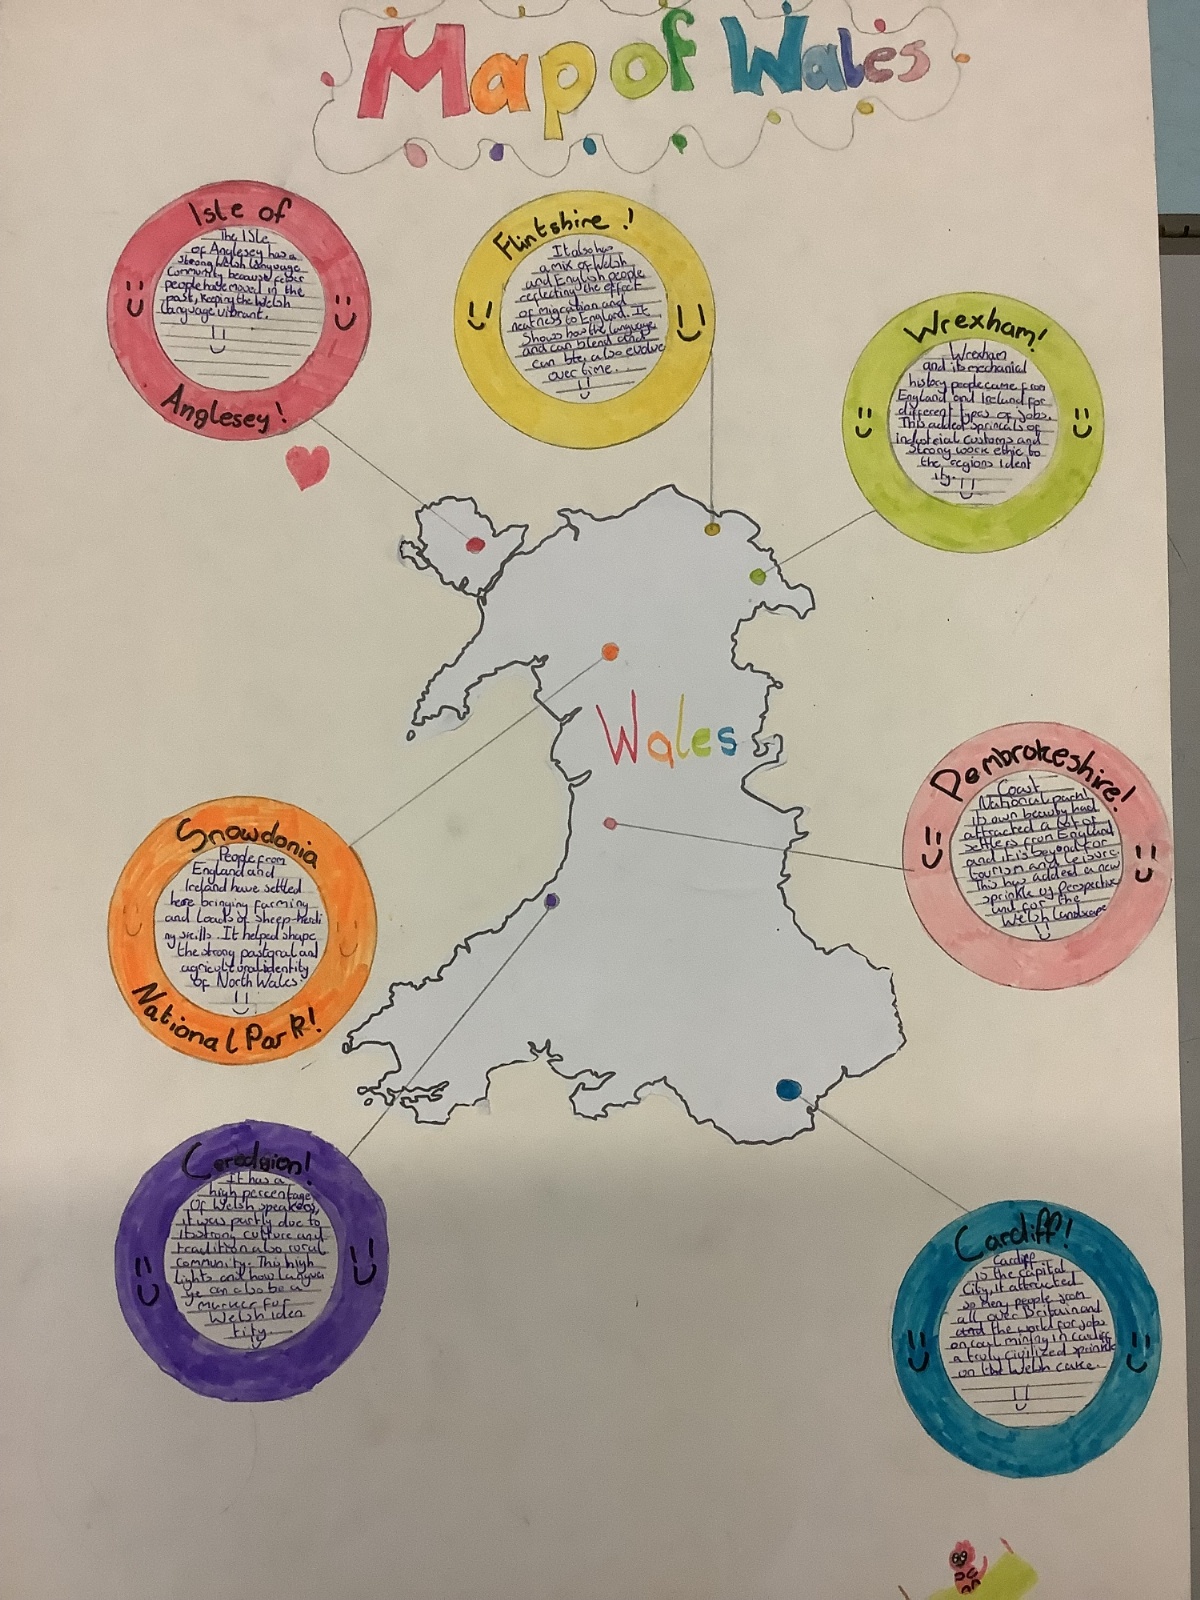 Map of Wales
Isle of
The Isle
of Anglesey has a
strong Welsh language
Community because fewer
people have moved in the
past, keeping the Welsh
language vibrant.
Anglesey!
Flintshire!
It also has
a mix of Welsh
and English people
reflecting the effect
of migration and
nearness to England. It
shows how the language
and can blend and
can be, also evolve
over time.
Wrexham!
Wrexham
and its mechanical
history people came from
England and Ireland for
different types of jobs.
This added sprincals of
industrial customs and
strong work ethic to
the regions ident
ity.
Wales
Pembrokeshire!
Coast
National park!
its own beauty had
attracted a lot of
settlers from England
and it is beyond for
tourism and leisure.
This has added a new
sprinkle of perspective
unit for the
Welsh landscape
Snowdonia
People from
England and
Ireland have settled
here bringing farming
and loads of sheep-herdi
ng skills. It helped shape
the strong pastoral and
agricultural identity
of North Wales.
National Park!
Ceredgion!
It has a
high percentage
of Welsh speakers,
it was partly due to
its strong culture and
tradition also rural
community. This high
lights and how langua
ge can also be a
marker for
Welsh iden
tity.
Cardiff!
Cardiff
is the capital
City, it attracted
so many people from
all over Britain and
and the world for jobs
on coal mining in cardiff
a truly civilized sprinkle
on the Welsh cake.